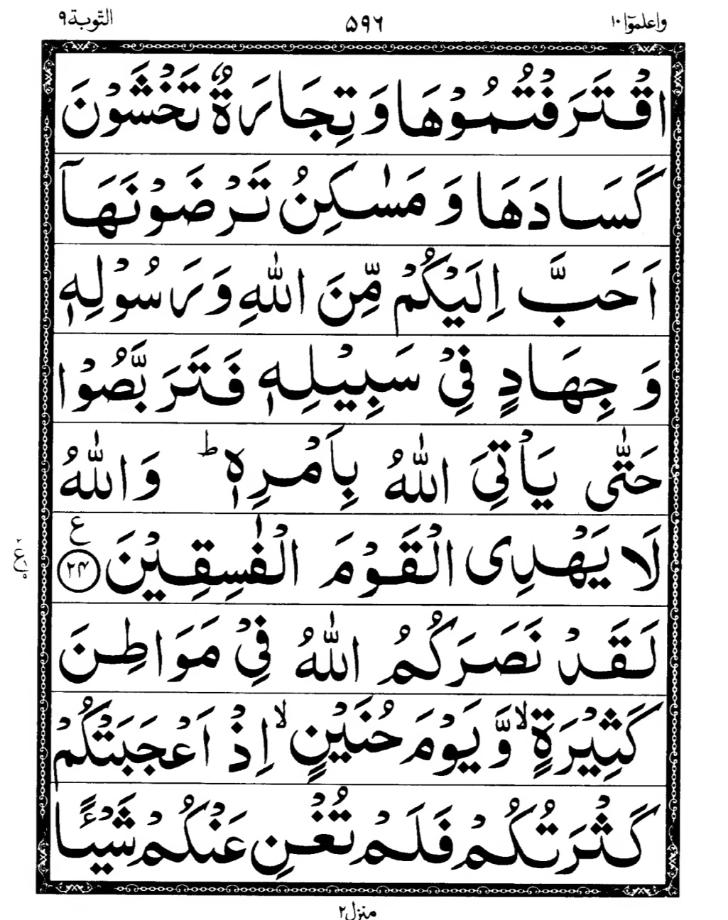 واعلموٓا۱۰ ۵۹۶ التّوبة۹
اقْتَرَفْتُمُوْهَا وَ تِجَارَةٌ تَخْشَوْنَ
كَسَادَهَا وَ مَسٰكِنُ تَرْضَوْنَهَاۤ
اَحَبَّ اِلَيْكُمْ مِّنَ اللّٰهِ وَ رَسُوْلِهٖ
وَ جِهَادٍ فِيْ سَبِيْلِهٖ فَتَرَبَّصُوْا
حَتّٰى يَاْتِيَ اللّٰهُ بِاَمْرِهٖ ؕ وَ اللّٰهُ
لَا يَهْدِى الْقَوْمَ الْفٰسِقِيْنَ ۲۴ ع
لَقَدْ نَصَرَكُمُ اللّٰهُ فِيْ مَوَاطِنَ
كَثِيْرَةٍ ۙ وَّ يَوْمَ حُنَيْنٍ ۙ اِذْ اَعْجَبَتْكُمْ
كَثْرَتُكُمْ فَلَمْ تُغْنِ عَنْكُمْ شَيْـًٔا
منزل۲